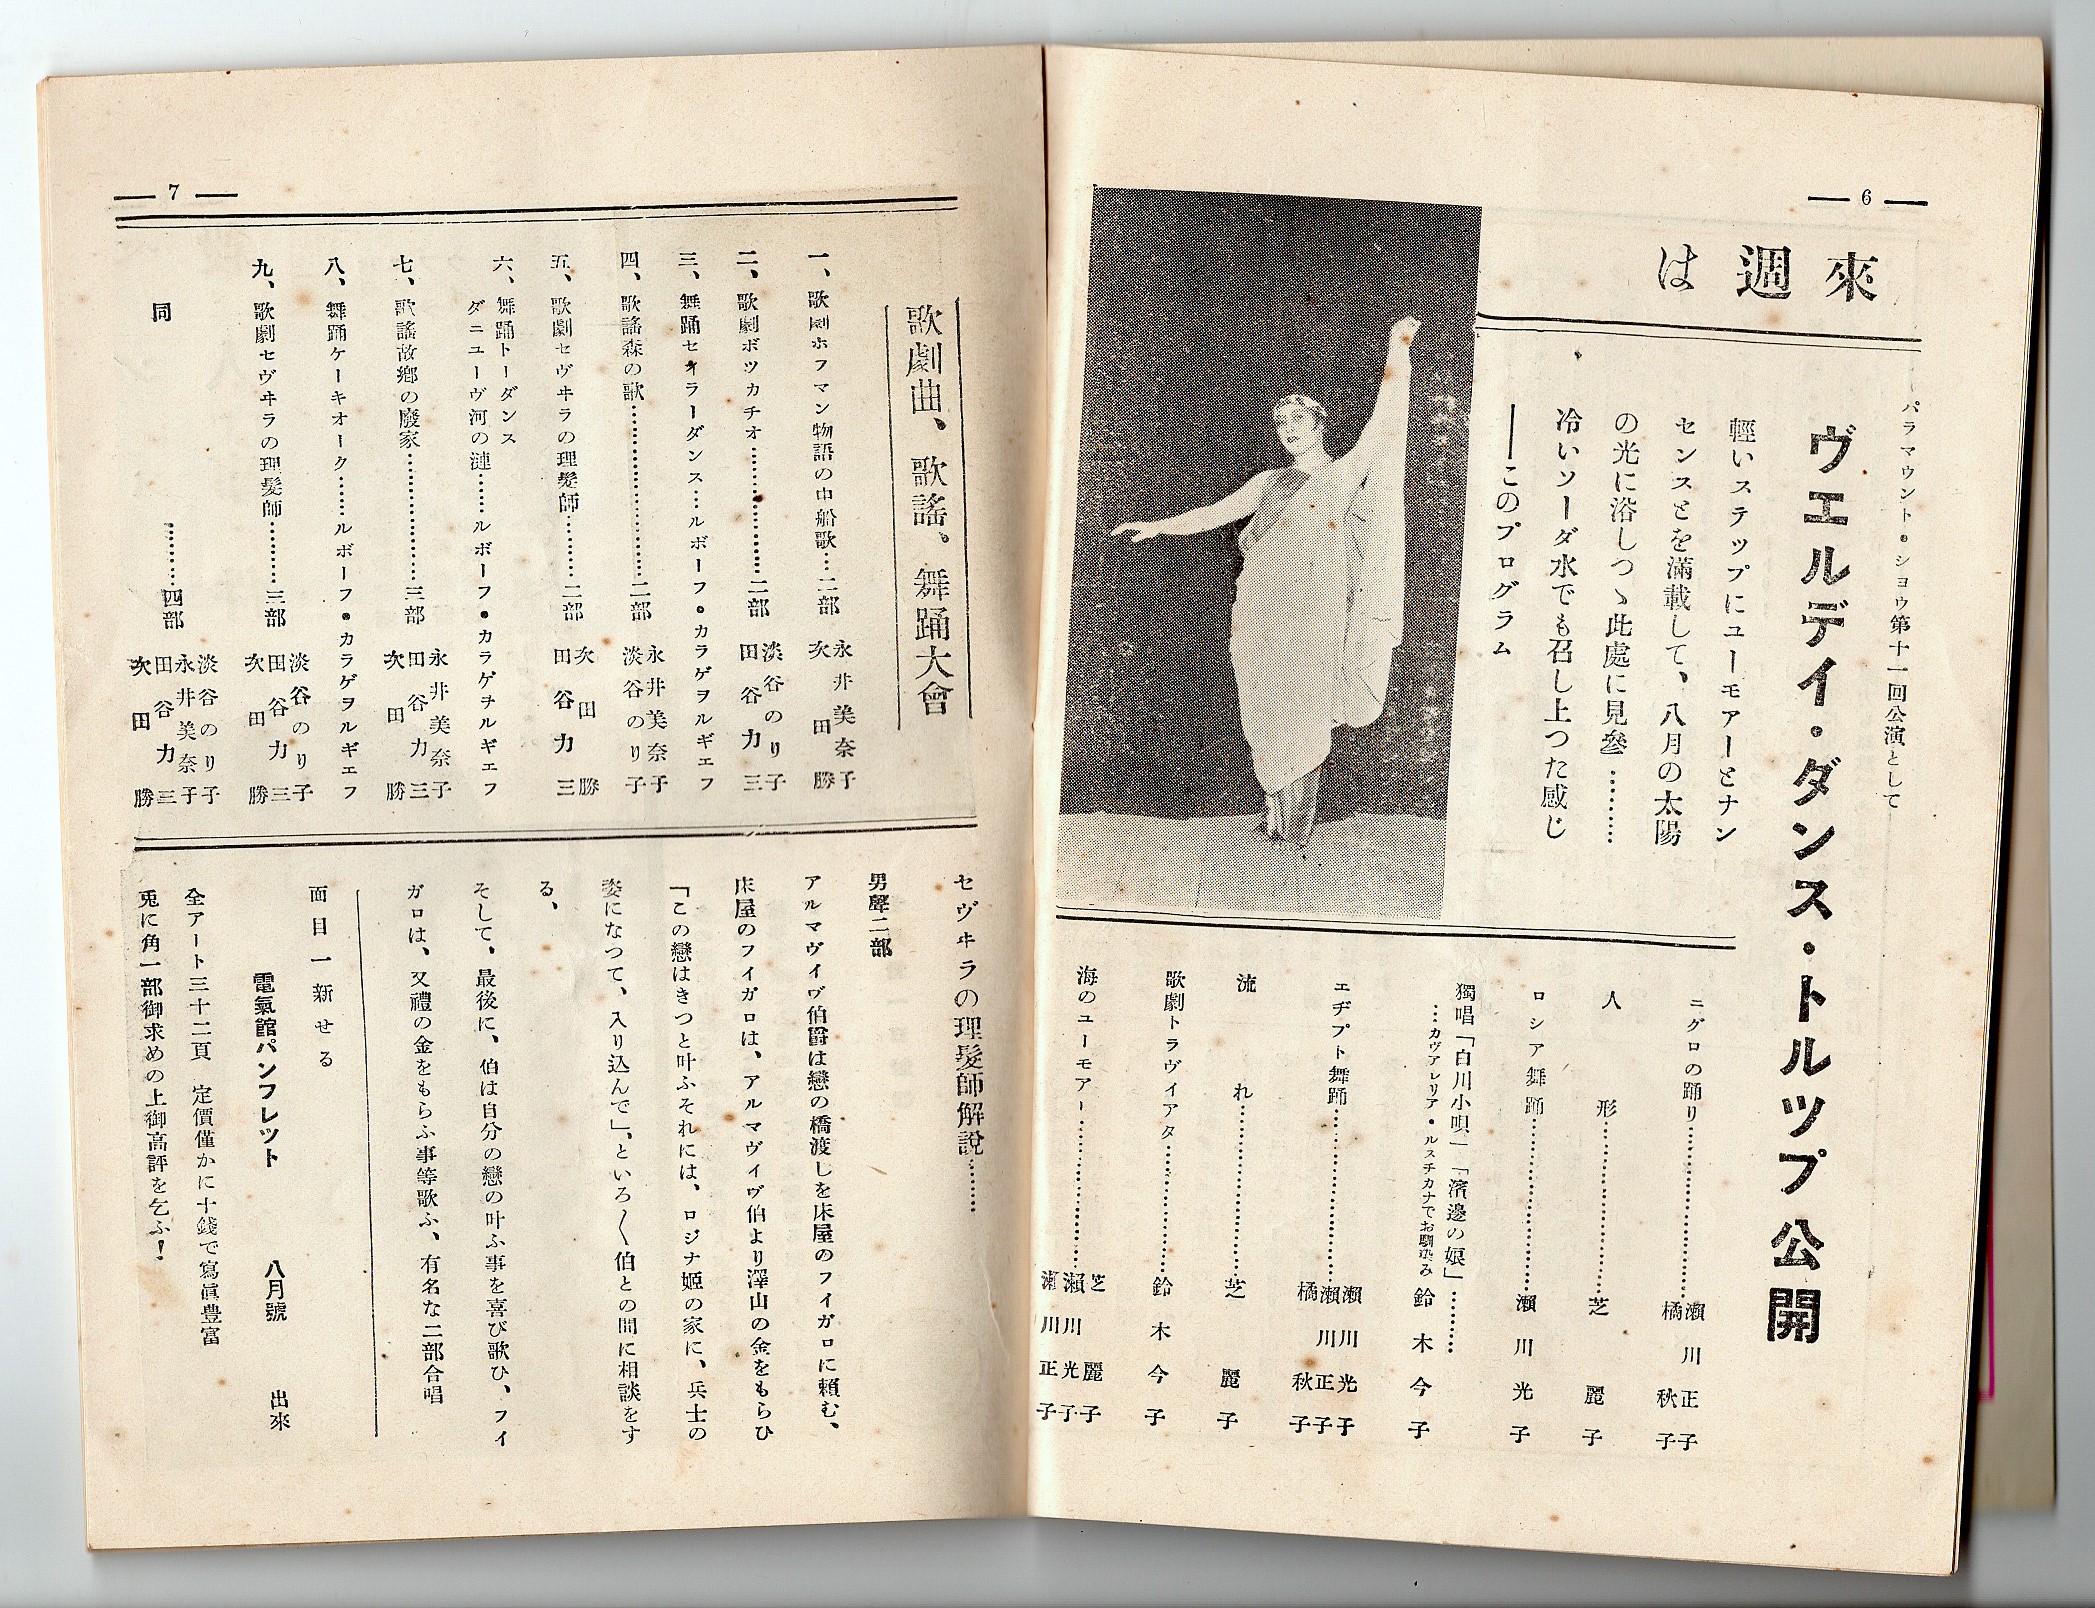 6
來週は
パラマウント・シヨウ第十一回公演として
ヴエルデイ・ダンス・トルツプ公開
輕いステツプにユーモアーとナン
センスとを滿載して、八月の太陽
の光に浴しつゝ此處に見參………
冷いソーダ水でも召し上つた感じ
――このプログラム
ニグロの踊り…………………瀨川正子
橘秋子
人形…………………芝麗子
ロシア舞踊…………………瀨川光子
獨唱「白川小唄」「濱邊の娘」………
…カヴアレリア・ルスチカナでお馴染み 鈴木今子
エヂプト舞踊…………………瀨川光子
瀨川正子
橘秋子
流れ…………………芝麗子
歌劇トラヴイアタ…………………鈴木今子
海のユーモアー…………………芝麗子
瀨川光子
瀨川正子
7
歌劇曲、歌謠、舞踊大會
一、歌劇ホフマン物語の中船歌…二部 永井美奈子
次田勝
二、歌劇ボツカチオ……………二部 淡谷のり子
田谷力三
三、舞踊セイラーダンス…ルボーフ・カラゲヲルギエフ
四、歌謠森の歌……………………二部 永井美奈子
淡谷のり子
五、歌劇セヴヰラの理髮師………二部 次田勝
田谷力三
六、舞踊トーダンス
ダニユーヴ河の漣……ルボーフ・カラゲヲルギエフ
七、歌謠故鄕の廢家………………三部 永井美奈子
田谷力三
次田勝
八、舞踊ケーキオーク……ルボーフ・カラゲヲルギエフ
九、歌劇セヴヰラの理髮師………三部 淡谷のり子
田谷力三
次田勝
同………四部 淡谷のり子
永井美奈子
田谷力三
次田勝
セヴヰラの理髮師解說………
男聲二部
アルマヴイヴ伯爵は戀の橋渡しを床屋のフイガロに賴む、
床屋のフイガロは、アルマヴイヴ伯より澤山の金をもらひ
「この戀はきつと叶ふそれには、ロジナ姬の家に、兵士の
姿になつて、入り込んで」、といろ〱伯との間に相談をす
る、
そして、最後に、伯は自分の戀の叶ふ事を喜び歌ひ、フイ
ガロは、又禮の金をもらふ事等歌ふ、有名な二部合唱
面目一新せる
電氣館パンフレツト 八月號 出來
全アート三十二頁 定價僅かに十錢で寫眞豊富
兎に角一部御求めの上御高評を乞ふ!